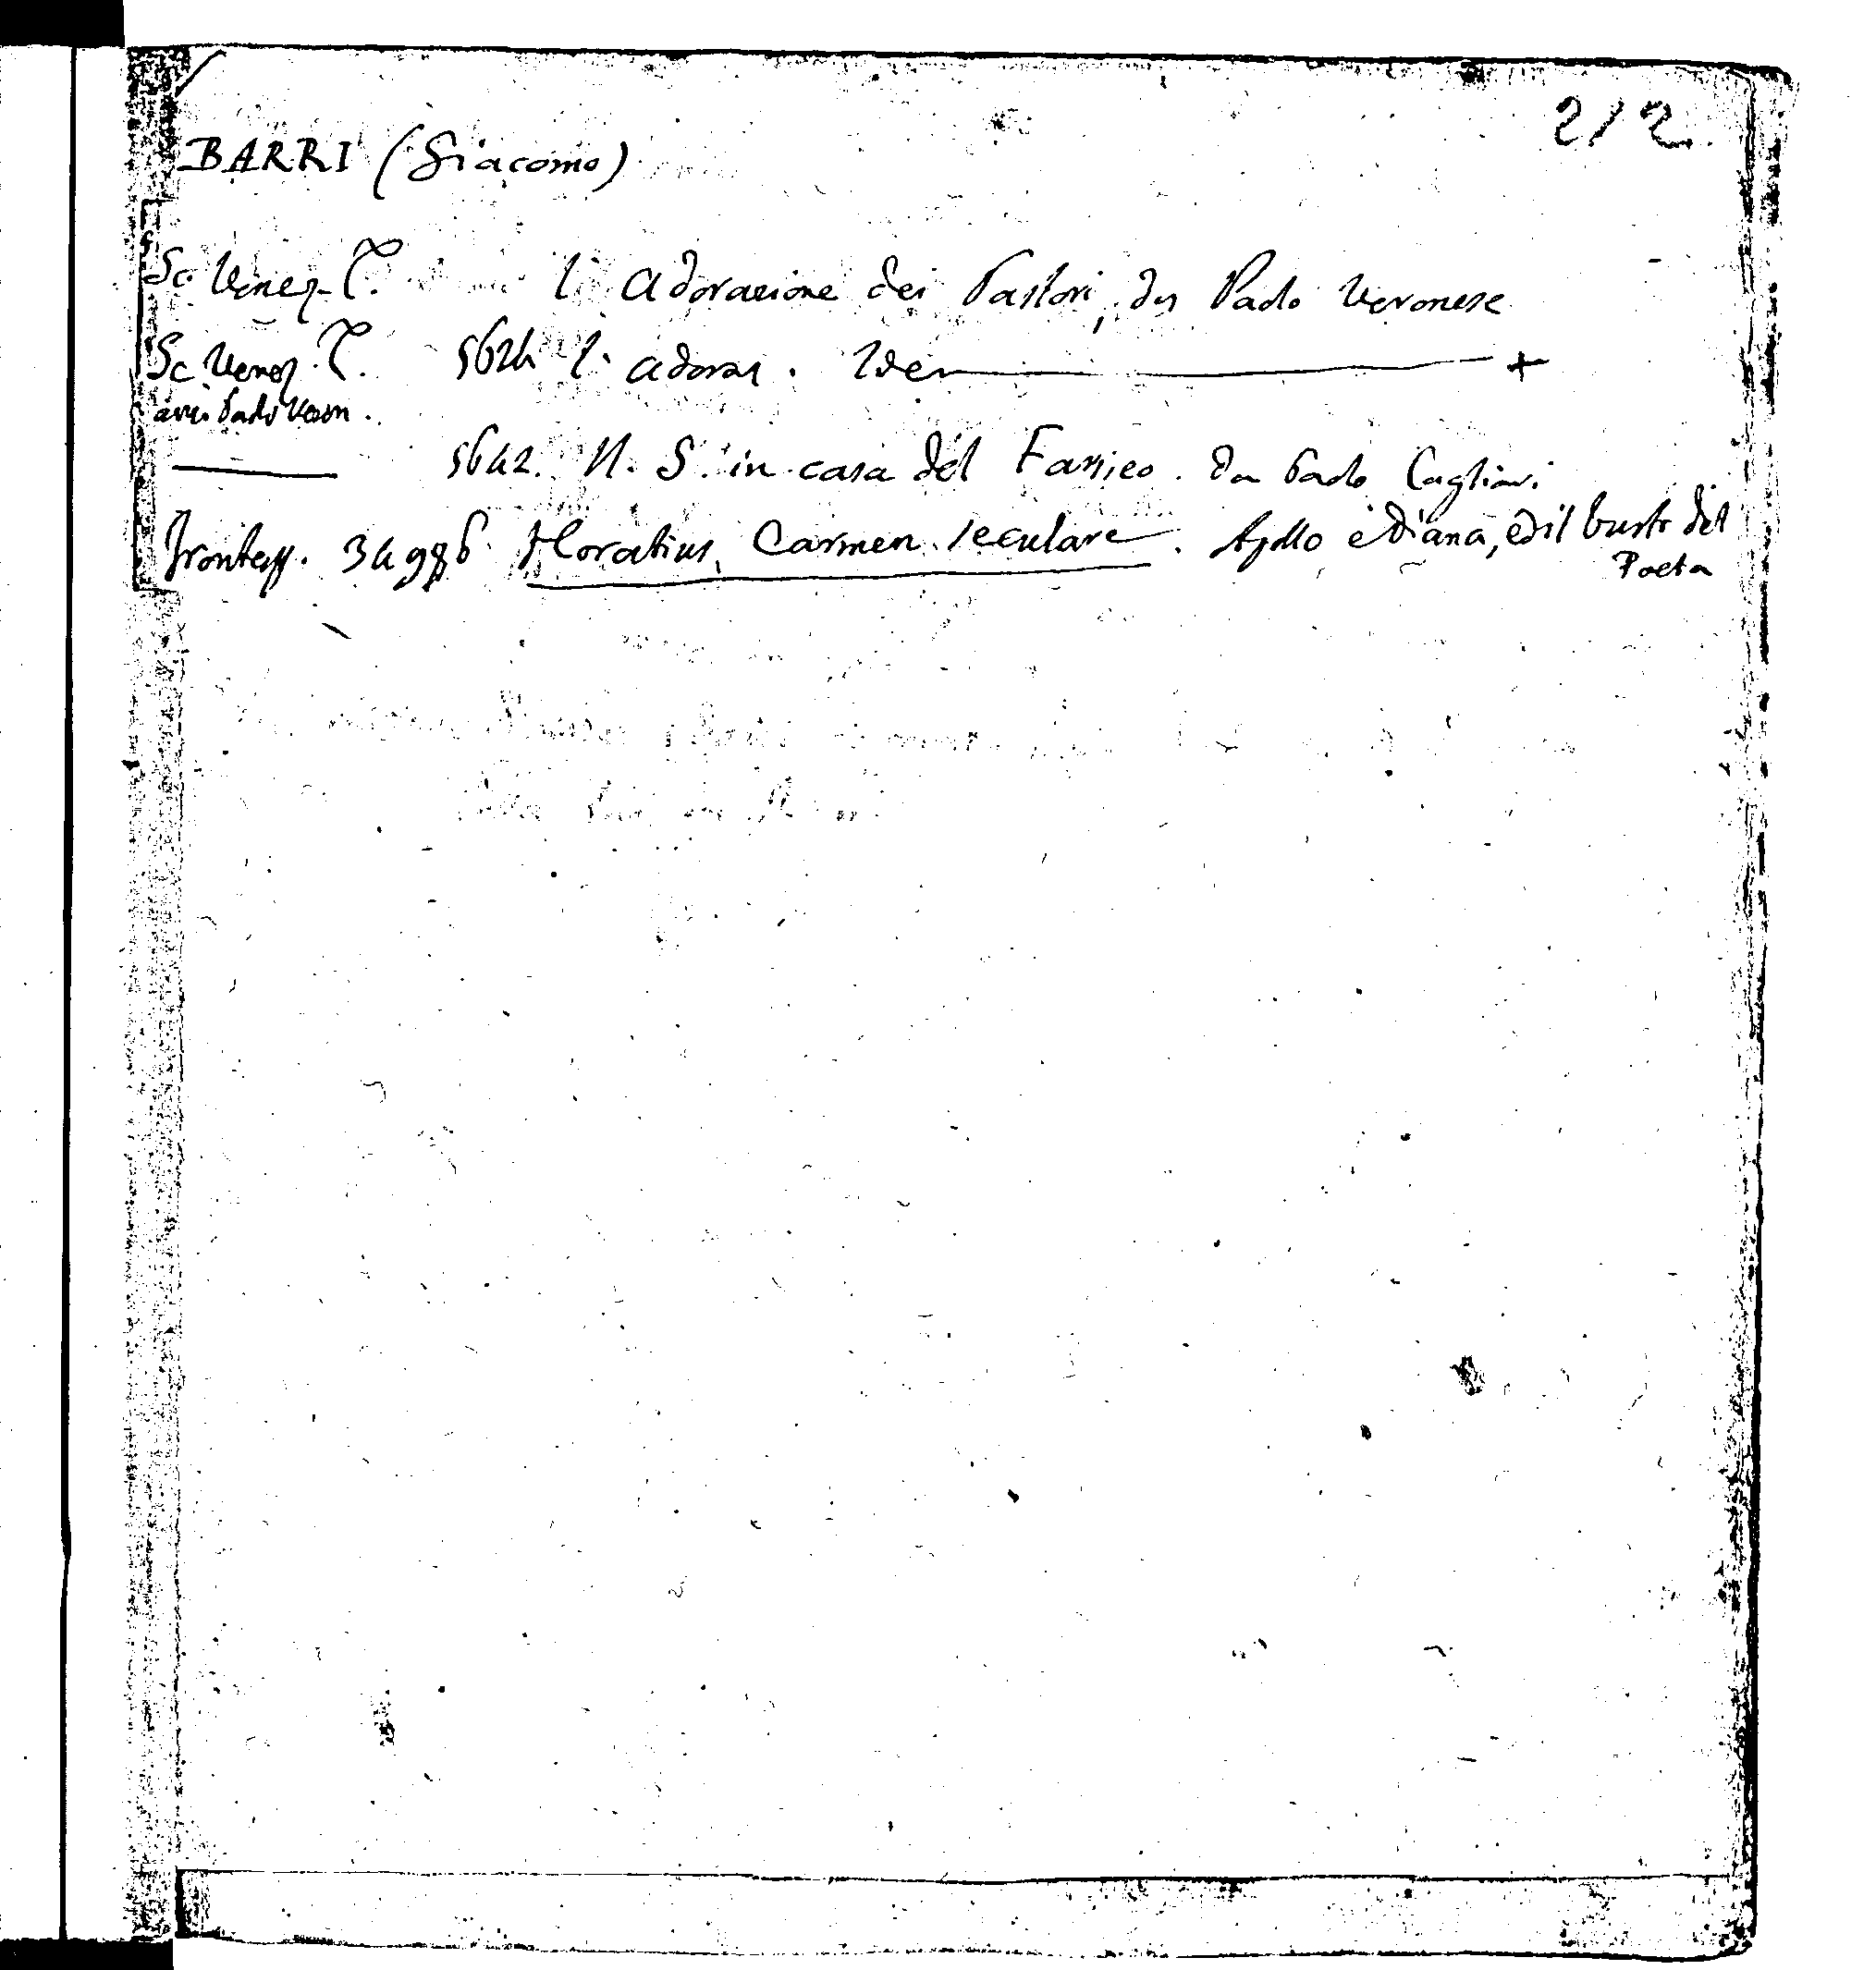 212
BARRI (Giacomo)
Sc. Venez. T. l' Adorazione dei Pastori, da Paolo Veronese
Sc. Venez. T. 5624 l' adoraz. Idem +
Paolo Veron.
5642. N. S. in casa del Farizeo. da Paolo Cagliari
frontesp. Horatius, Carmen seculare. Apollo e Diana, ed il busto del
Poeta